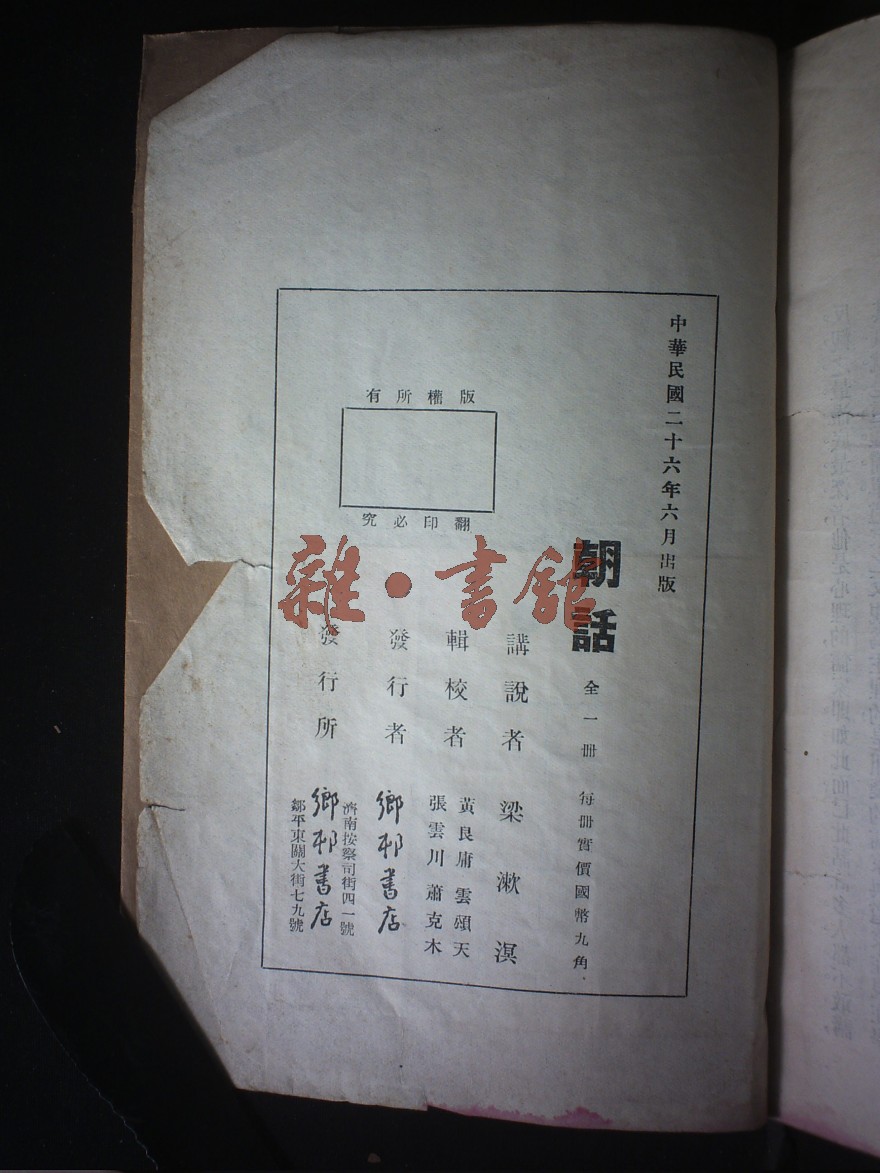 中華民國二十六年六月出版
朝話 全一冊 每冊實價國幣九角
講說者 梁漱溟
輯校者 黃良庸 雲頌天
張雲川 蕭克木
發行者 鄉邨書店
發行所 鄉邨書店
濟南按察司街四一號
鄒平東關大街七九號
版權所有
翻印必究
雜·書館